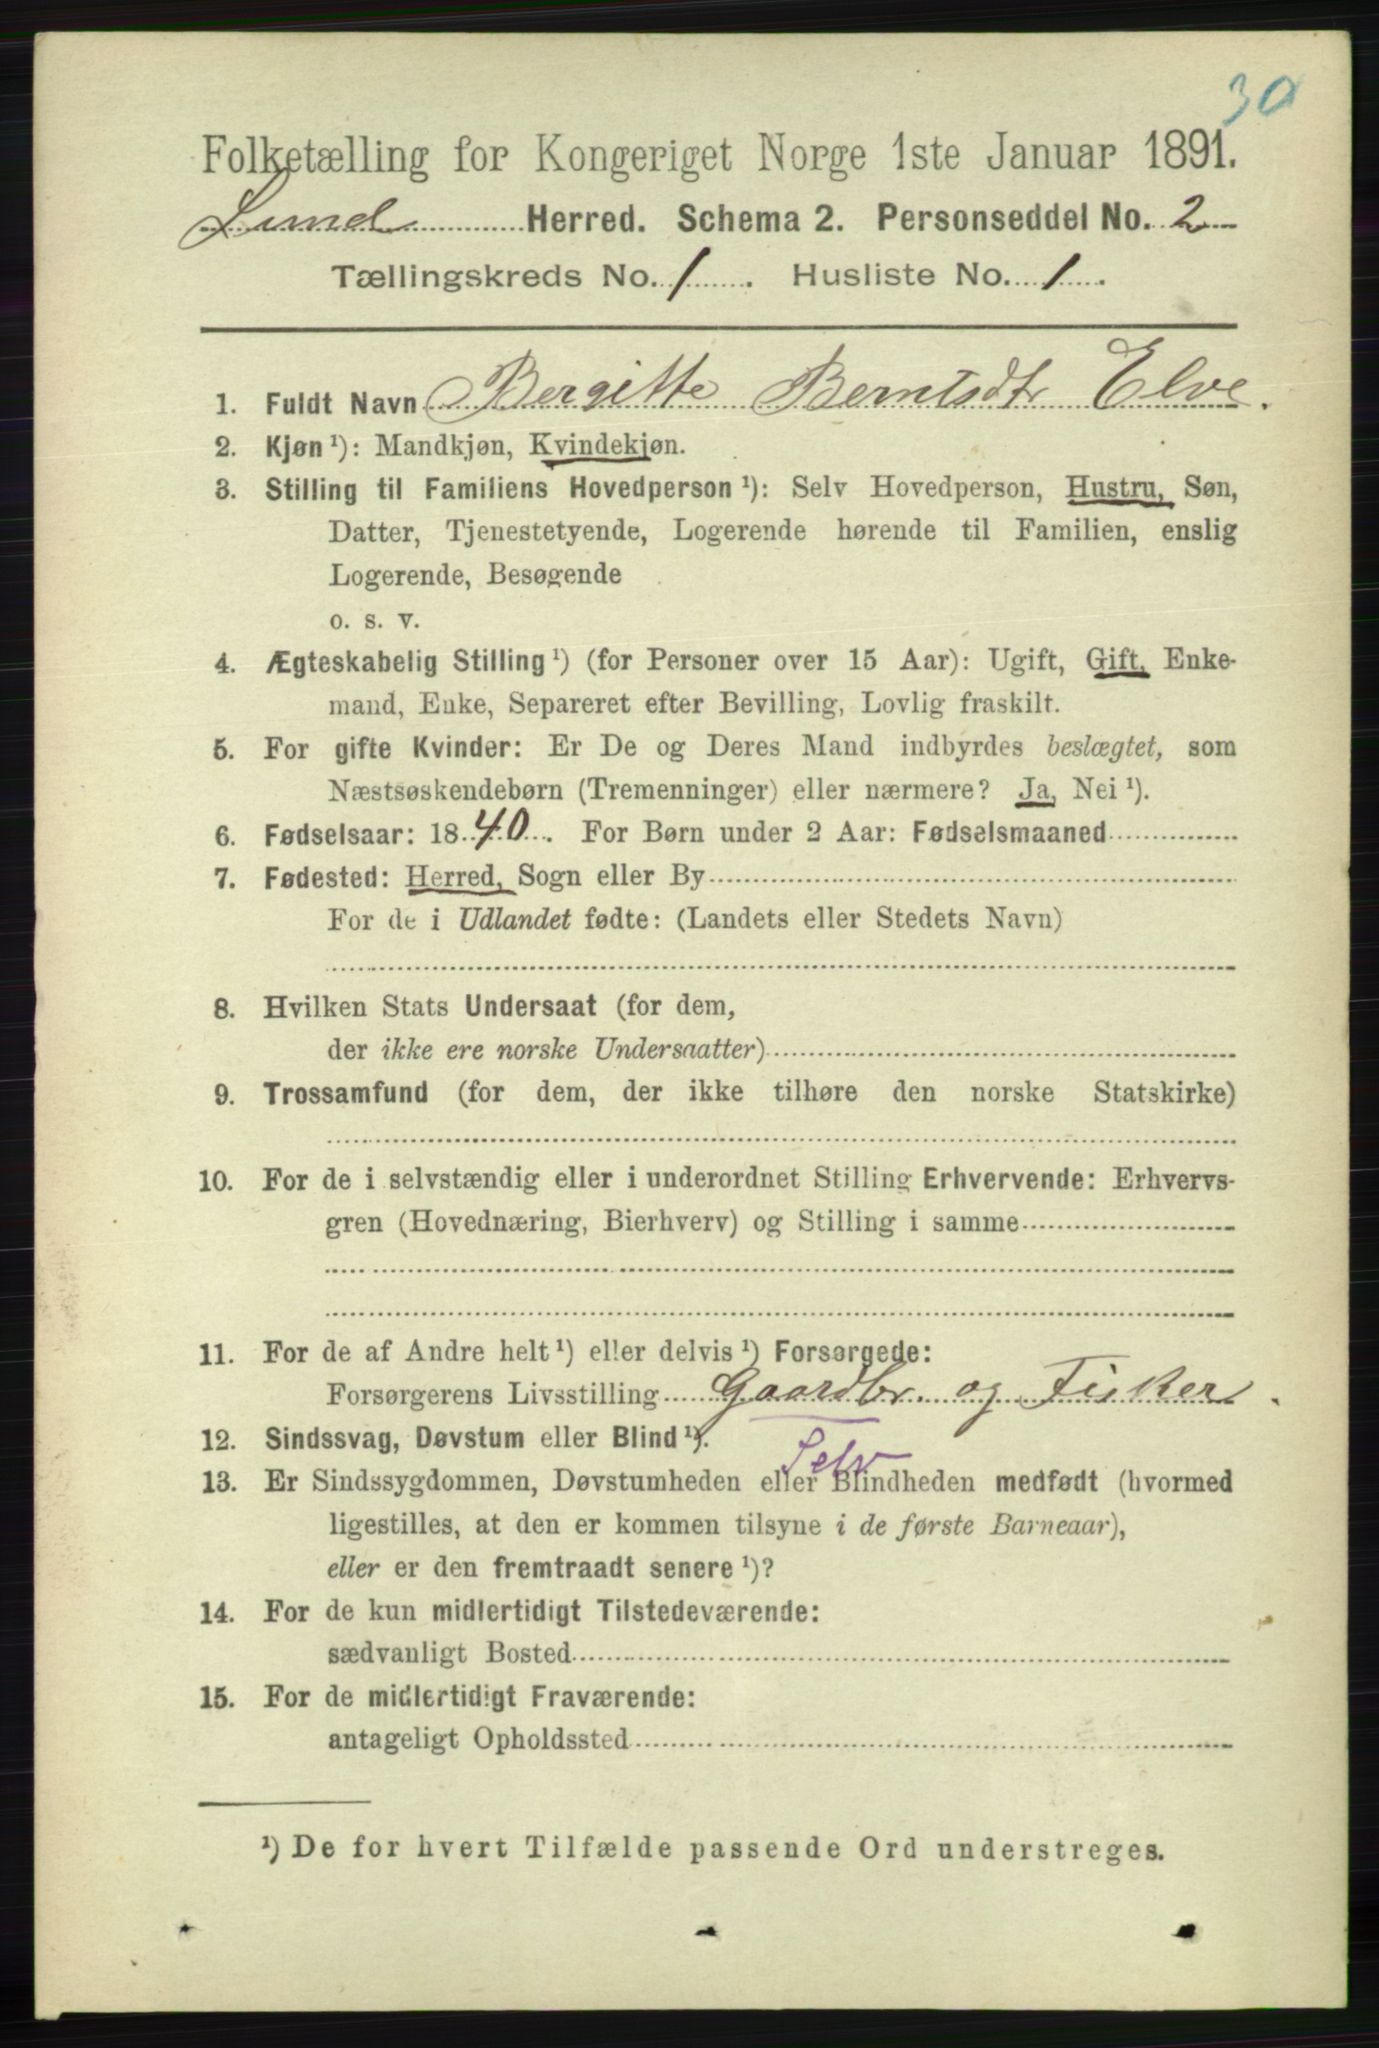 30
Folketælling for Kongeriget Norge 1ste Januar 1891.
Lund Herred. Schema 2. Personseddel No. 2
Tællingskreds No. 1. Husliste No. 1.
1. Fuldt Navn Bergitte Berntsdtr Elve.
2. Kjøn ¹): Mandkjøn, Kvindekjøn.
3. Stilling til Familiens Hovedperson ¹): Selv Hovedperson, Hustru, Søn,
Datter, Tjenestetyende, Logerende hørende til Familien, enslig
Logerende, Besøgende
o. s. v.
4. Ægteskabelig Stilling ¹) (for Personer over 15 Aar): Ugift, Gift, Enke-
mand, Enke, Separeret efter Bevilling, Lovlig fraskilt.
5. For gifte Kvinder: Er De og Deres Mand indbyrdes beslægtet, som
Næstsøskendebørn (Tremenninger) eller nærmere? Ja, Nei ¹).
6. Fødselsaar: 1840. For Børn under 2 Aar: Fødselsmaaned
7. Fødested: Herred, Sogn eller By
For de i Udlandet fødte: (Landets eller Stedets Navn)
8. Hvilken Stats Undersaat (for dem,
der ikke ere norske Undersaatter)
9. Trossamfund (for dem, der ikke tilhøre den norske Statskirke)
10. For de i selvstændig eller i underordnet Stilling Erhvervende: Erhvervs-
gren (Hovednæring, Bierhverv) og Stilling i samme
11. For de af Andre helt ¹) eller delvis ¹) Forsørgede:
Forsørgerens Livsstilling Gaardbr. og Fisker.
12. Sindssvag, Døvstum eller Blind ¹). Selv
13. Er Sindssygdommen, Døvstumheden eller Blindheden medfødt (hvormed
ligestilles, at den er kommen tilsyne i de første Barneaar),
eller er den fremtraadt senere ¹)?
14. For de kun midlertidigt Tilstedeværende:
sædvanligt Bosted
15. For de midlertidigt Fraværende:
antageligt Opholdssted
¹) De for hvert Tilfælde passende Ord understreges.